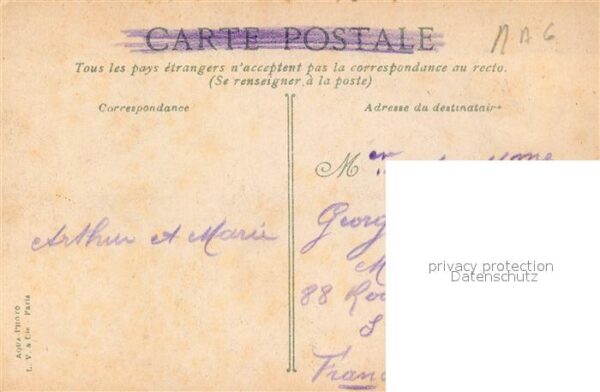 CARTE POSTALE
M A G
Tous les pays étrangers n'acceptent pas la correspondance au recto.
(Se renseigner à la poste)
Correspondance
Adresse du destinataire
M
Arthur et Marie
Georg
88
Fran
privacy protection
Datenschutz
AQUA-PHOTO
L. V. & Cie - Paris